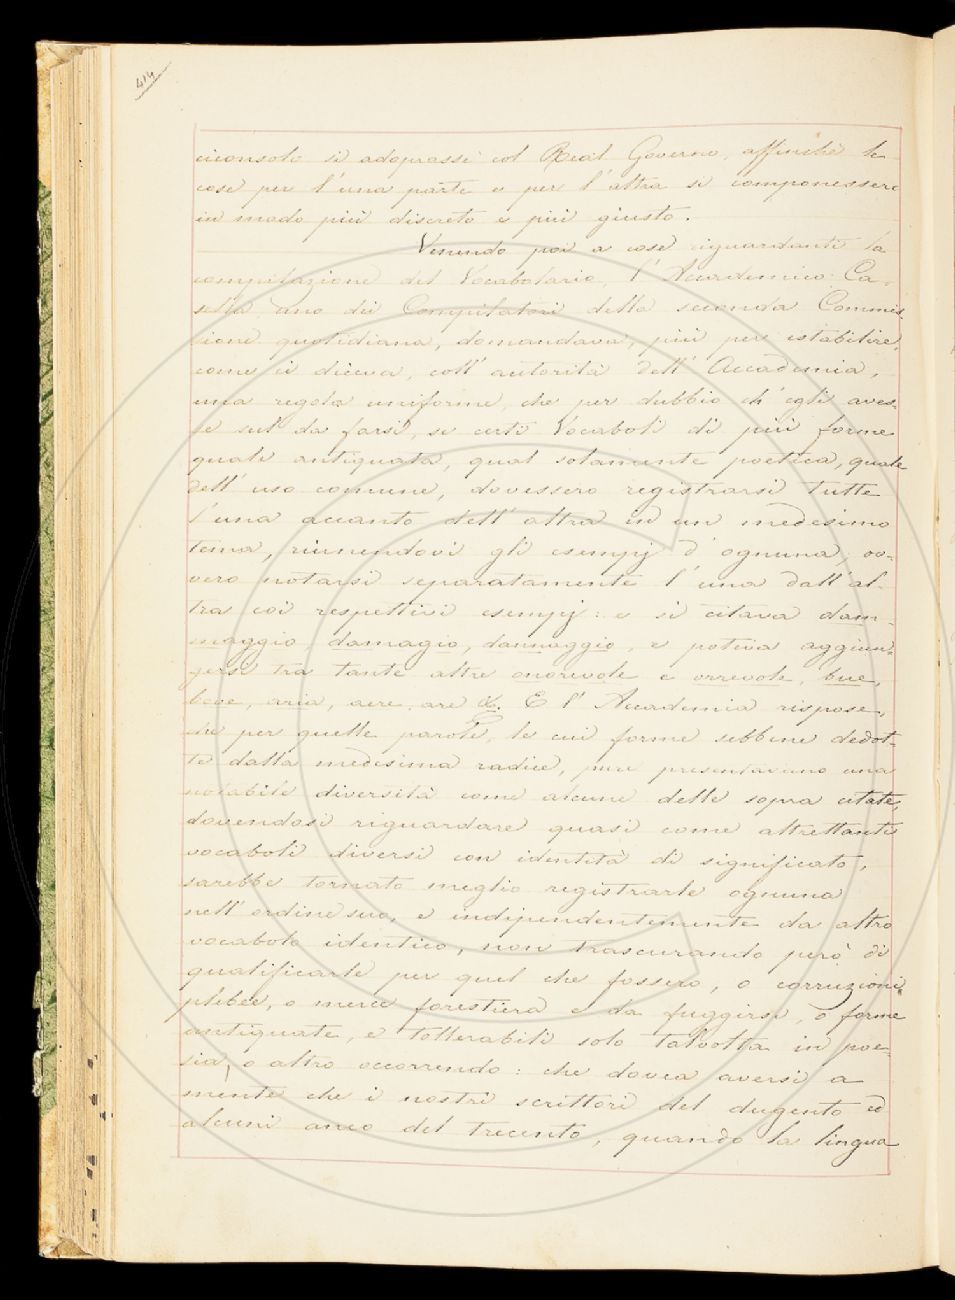 414
ciconsolo si adoprasse col Real Governo, affinchè le
cose per l'una parte e per l'altra si componessero
in modo più discreto e più giusto.
Venendo poi a cose riguardanti la
compilazione del Vocabolario, l'Accademico Ca-
sella, uno dei Compilatori della seconda Commis-
sione quotidiana, domandava, più per istabilire,
come ei diceva, coll'autorità dell'Accademia,
una regola uniforme, che per dubbio ch'egli aves-
se sul da farsi, se certi Vocaboli di più forme
quale antiquata, qual solamente poetica, quale
dell'uso comune, dovessero registrarsi tutte
l'una accanto dell'altra in un medesimo
tema, riunendovi gli esempj d'ognuna, ov-
vero notarsi separatamente l'una dall'al-
tra coi respettivi esempj: e si citava dam-
maggio, damagio, dannaggio, e poteva aggiun-
gersi tra tante altre onorevole e orrevole, bue,
bove, aria, aere, are &. E l'Accademia rispose,
che per quelle parole, le cui forme sebbene dedot-
te dalla medesima radice, pure presentavano una
notabile diversità come alcune delle sopra citate,
dovendosi riguardare quasi come altrettanti
vocaboli diversi con identità di significato,
sarebbe tornato meglio registrarle ognuna
nell'ordine suo, e indipendentemente da altro
vocabolo identico, non trascurando però di
qualificarle per quel che fossero, o corruzioni
plebee, o merce forestiera e da fuggirsi, o forme
antiquate, e tollerabili solo talvolta in poe-
sia, o altro occorrendo: che dovea aversi a
mente che i nostri scrittori del dugento ed
alcuni anco del trecento, quando la lingua